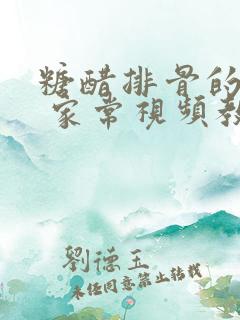 糖醋排骨的
家常視頻教
劉德玉
未經同意禁止轉載